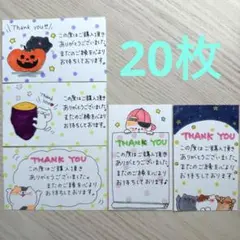 Thank you!!
この度はご購入頂き
ありがとうございました。
またのご縁を心より
お待ちしております。
20枚
この度はご購入頂き
ありがとうございました。
またのご縁を心より
お待ちしております。
THANK YOU
この度はご購入頂き
ありがとうございました。
またのご縁を心より
お待ちしております。
THANK YOU
この度はご購入頂き
ありがとうございました。
またのご縁を心より
お待ちしております。
THANK YOU
この度はご購入頂き
ありがとうございました。
またのご縁を心より
お待ちしております。